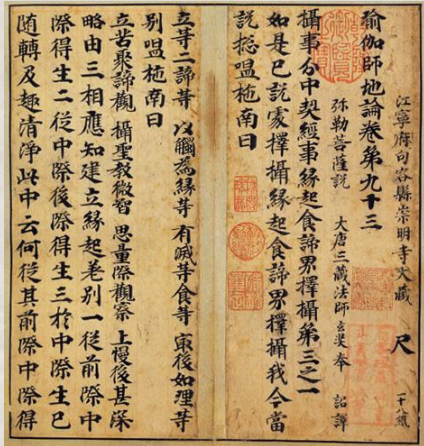 江寧府句容縣崇明寺大藏 尺 一十八紙
瑜伽師地論卷第九十三
彌勒菩薩説 大唐三藏法師玄奘奉 詔譯
攝事分中契經事緣起食諦界擇攝第三之一
如是已説處擇攝緣起食諦界擇攝我今當
説揔嗢柂南曰
立等二諦等 以觸為緣等 有滅等食等 冣後如理等
別嗢柂南曰
立苦聚諦觀 攝聖教微智 思量際觀察 上慢後甚深
略由三相應知建立緣起差別一從前際中
際得生二從中際後際得生三於中際生已
随轉及趣清淨此中云何從其前際中際得